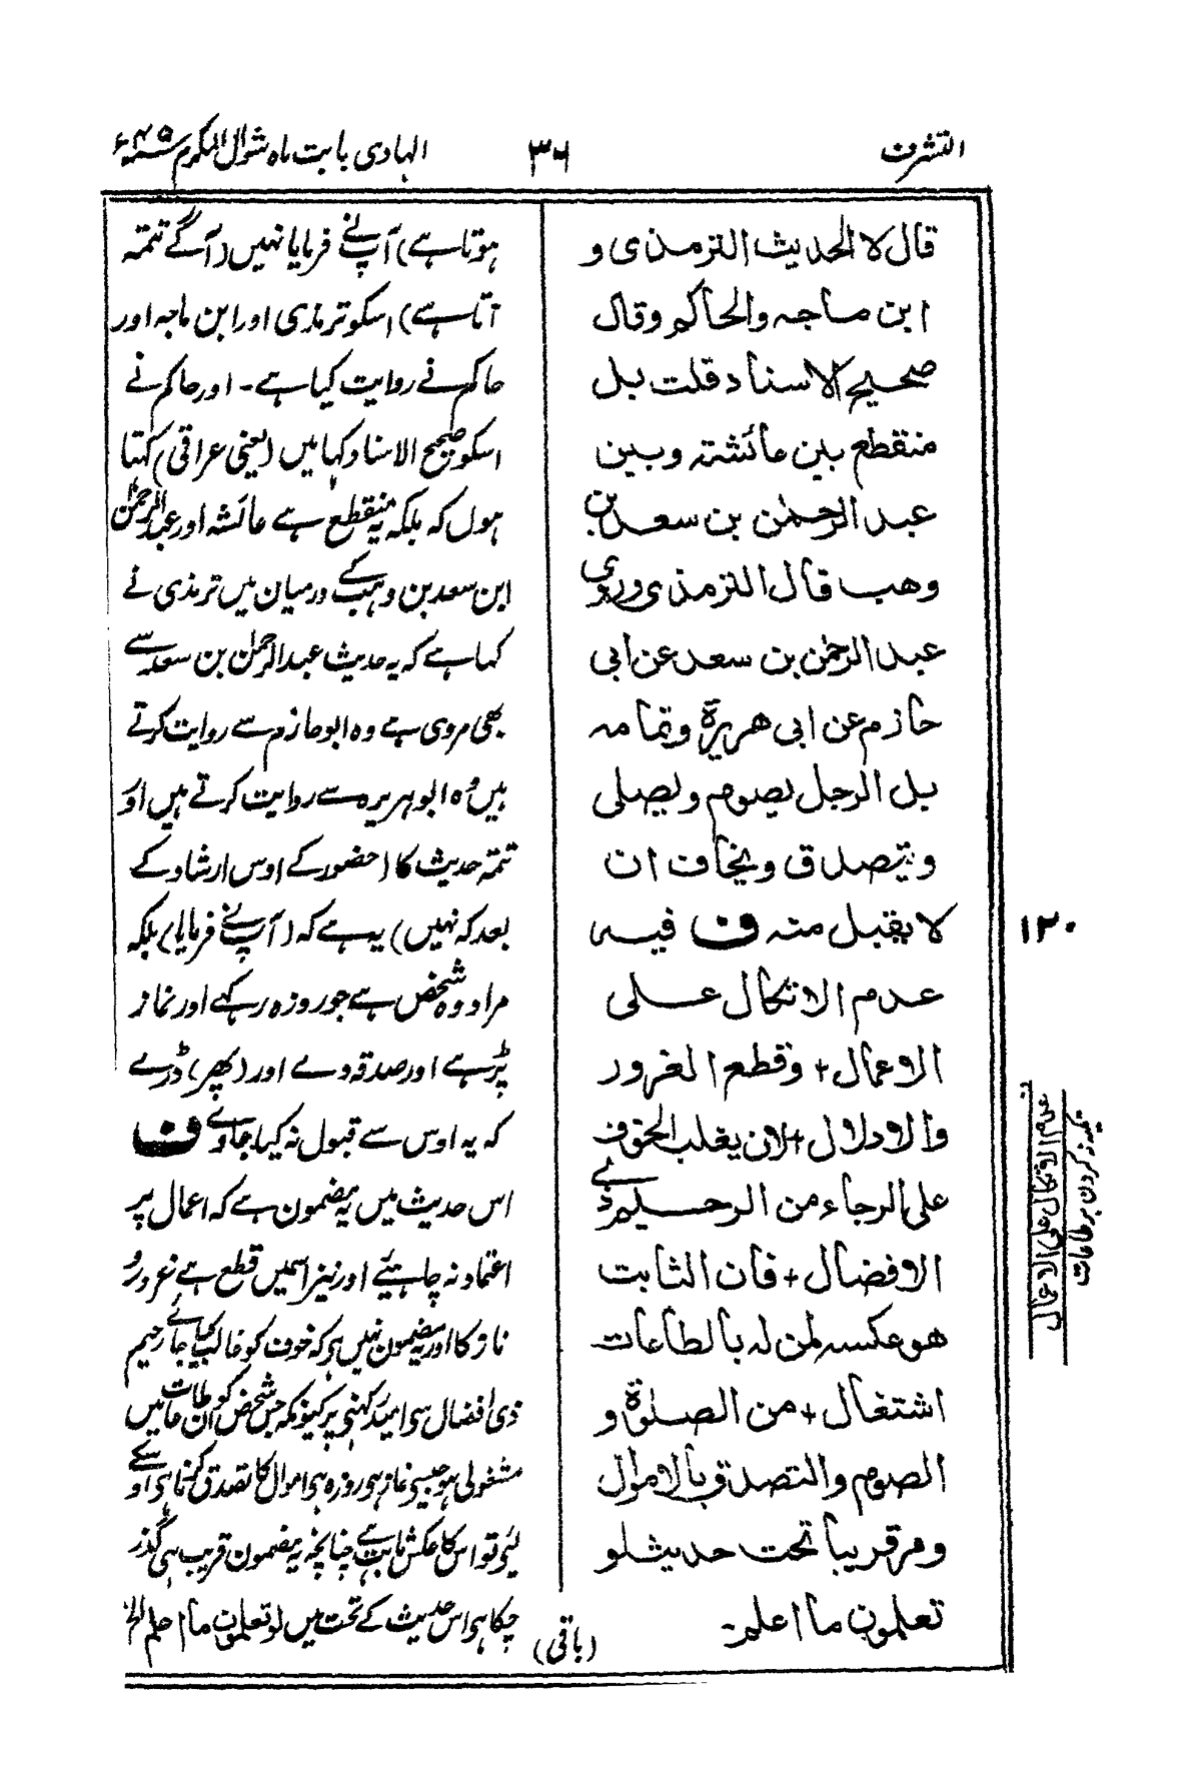 التشرف
٣٦
الہادی بابت ماہ شوال المکرم سنہ ۴۵ ء
قال لا الحدیث الترمذی و
ابن ماجہ والحاکم وقال
صحیح الاسناد قلت بل
منقطع بین عائشتہ وبین
عبد الرحمٰن بن سعد بن
وھب قال الترمذی وروی
عبد الرحمٰن بن سعد عن ابی
حازم عن ابی ھریرۃ وتمامہ
بل الرجل یصوم ویصلی
ویتصدق ویخاف ان
لا یقبل منہ ف فیہ
عدم الاتکال علی
الاعمال + وقطع الغرور
والادلال + لان یغلب الخوف
علی الرجاء من الرحیم ذی
الافضال + فان الثابت
ھو عکسہ لمن لہ بالطاعات
اشتغال + من الصلٰوۃ و
الصوم والتصدق بالاموال
ومر قریبا تحت حدیث لو
تعلمون ما اعلم۔
ہوتا ہے) آپ نے فرمایا نہیں (آگے تتمہ
آتا ہے) اسکو ترمذی اور ابن ماجہ اور
حاکم نے روایت کیا ہے۔ اور حاکم نے
اسکو صحیح الاسناد کہا میں (یعنی عراقی) کہتا
ہوں کہ بلکہ یہ منقطع ہے عائشہ اور عبدالرحمٰن
ابن سعد بن وہب کے درمیان میں ترمذی نے
کہا ہے کہ یہ حدیث عبدالرحمٰن بن سعد سے
بھی مروی ہے وہ ابوحازم سے روایت کرتے
ہیں وہ ابوہریرہ سے روایت کرتے ہیں اور
تتمہ حدیث کا (حضور کے اوس ارشاد کے
بعد کہ نہیں) یہ ہے کہ (آپ نے فرمایا) بلکہ
مراد وہ شخص ہے جو روزہ رکہے اور نماز
پڑہے اور صدقہ دے اور (پھر) ڈرے
کہ یہ اوس سے قبول نہ کیا جاوے ف
اس حدیث میں یہ مضمون ہے کہ اعمال پر
اعتماد نہ چاہیئے اور نیز اسمیں قطع ہے غرور و
ناز کا اور یہ مضمون نہیں ہی کہ خوف کو غالب کیا جائے رحیم
ذی افضال سی امید رکہنی پر کیونکہ جس شخص کو ان طاعات میں
مشغولی ہو جیسی نماز ہی روزہ ہی اموال کا تصدق کرنا ہی اوسکے
لیی تو اس کا عکس ثابت ہے چنانچہ یہ مضمون قریب ہی گذر
چکا ہی اس حدیث کے تحت میں لو تعلمون ما اعلم الخ
(باقی)
۱۲۰
عدم الاتکال علی الاعمال
تکیہ نہ کردن بر طاعات